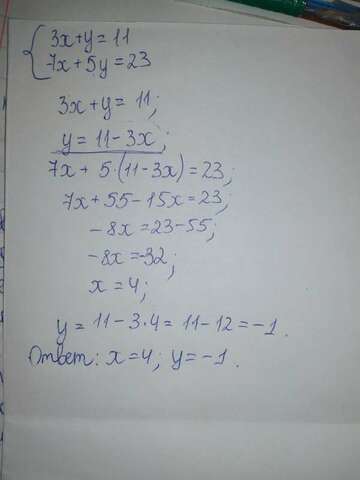 3x+y=11
7x+5y=23
3x+y=11;
y=11-3x;
7x+5·(11-3x)=23;
7x+55-15x=23;
-8x=23-55;
-8x=-32;
x=4;
y=11-3·4=11-12=-1.
Ответ: x=4; y=-1.